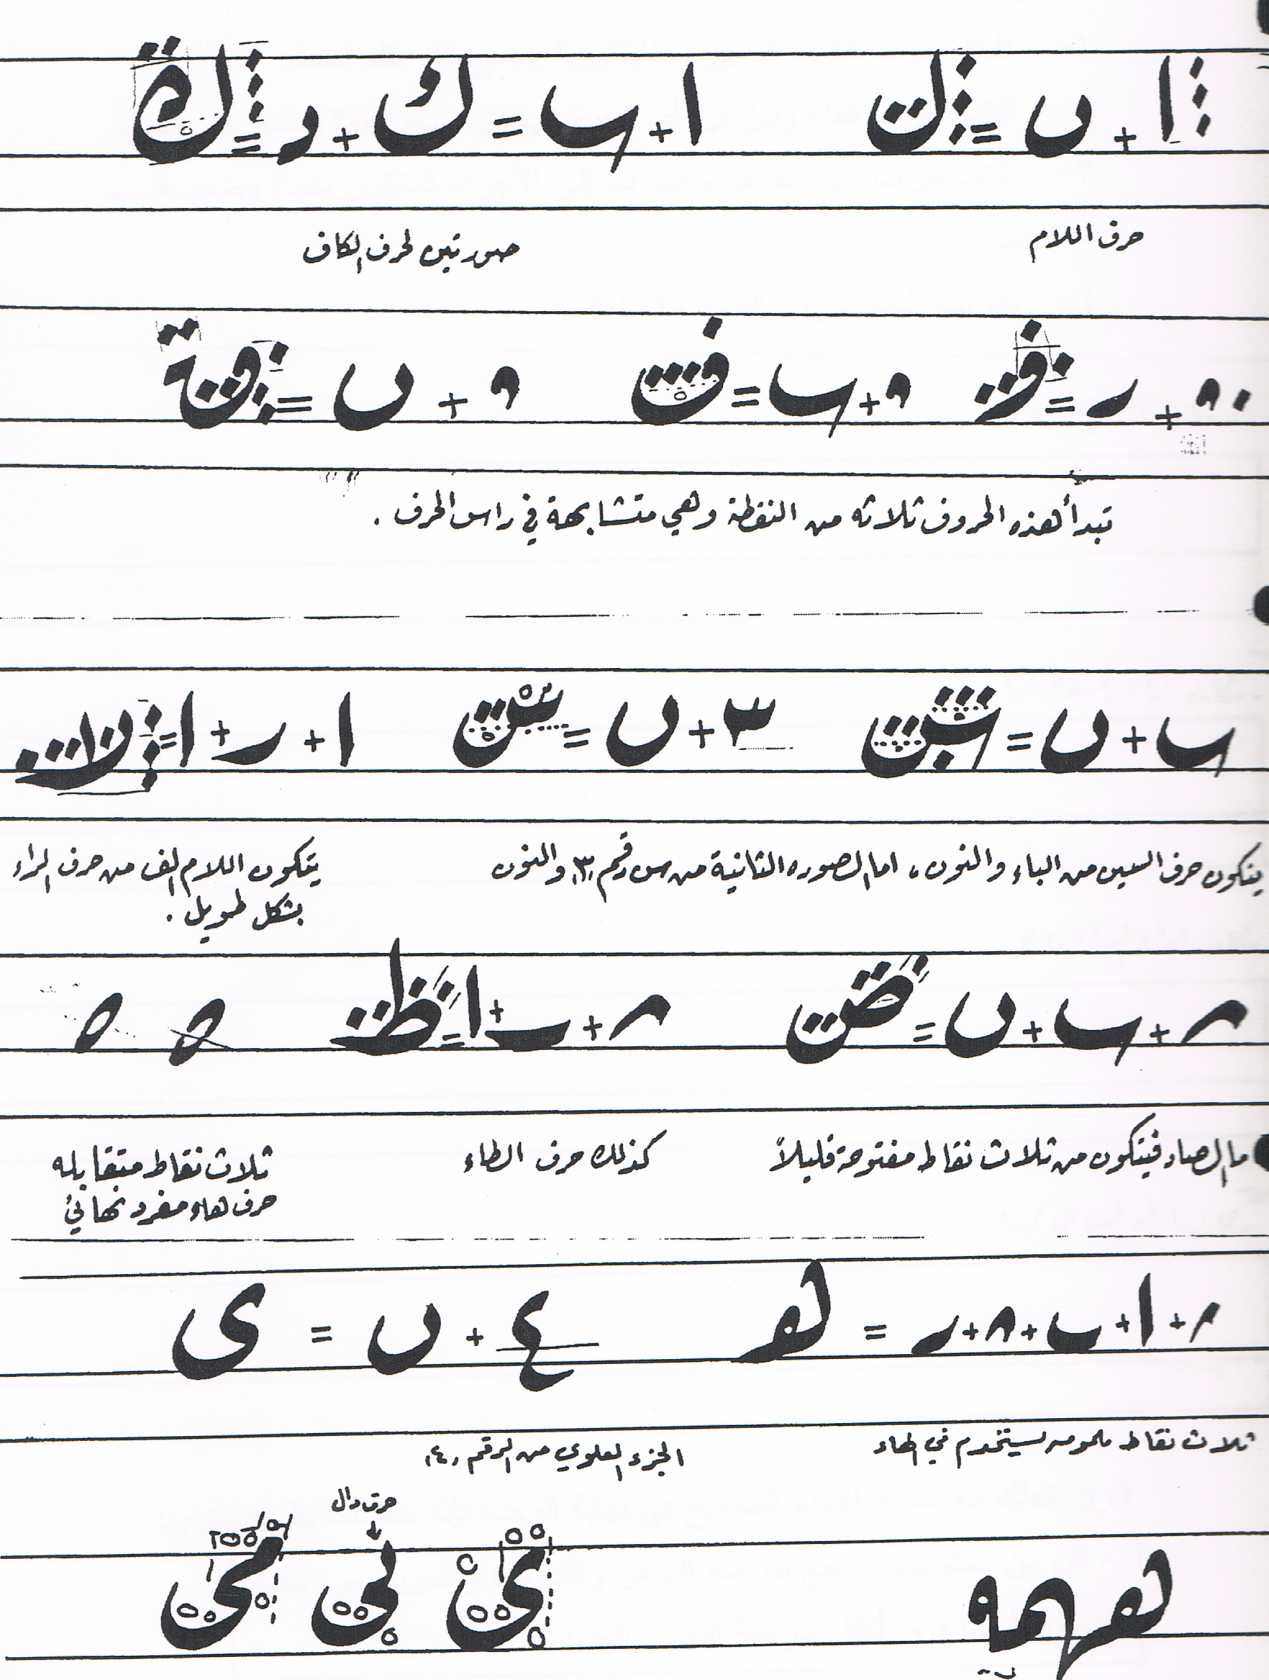 ا + ں = ل    ا + ٮ = ك + ر = ك
حرف اللام    صورتين لحرف الكاف
و + ر = و    و + ٮ = ف    و + ں = ق
تبدأ هذه الحروف ثلاثه من النقطة وهي متشابهة في راس الحرف .
ٮ + ں = س    ٣ + ں = س    ا + ر + ا = لا
يتكون حرف السين من الباء والنون ، اما الصوره الثانية من س رقم ٣ والنون    يتكون اللام الف من حرف الراء
بشكل طويل .
+ ٮ + ں = ص    + ٮ + ا = ط    ه ه
ما الصاد فيتكون من ثلاث نقاط مفتوحة قليلاً    كذلك حرف الطاء    ثلاث نقاط متقابله
حرف هاء مفرد نهائي
+ ا + ٮ + + ر = هـ    ع + ں = ى
ثلاث نقاط ملمومه يستخدم في الهاء    الجزء العلوي من الرقم ٤
حرف دال
ى    ى    ى